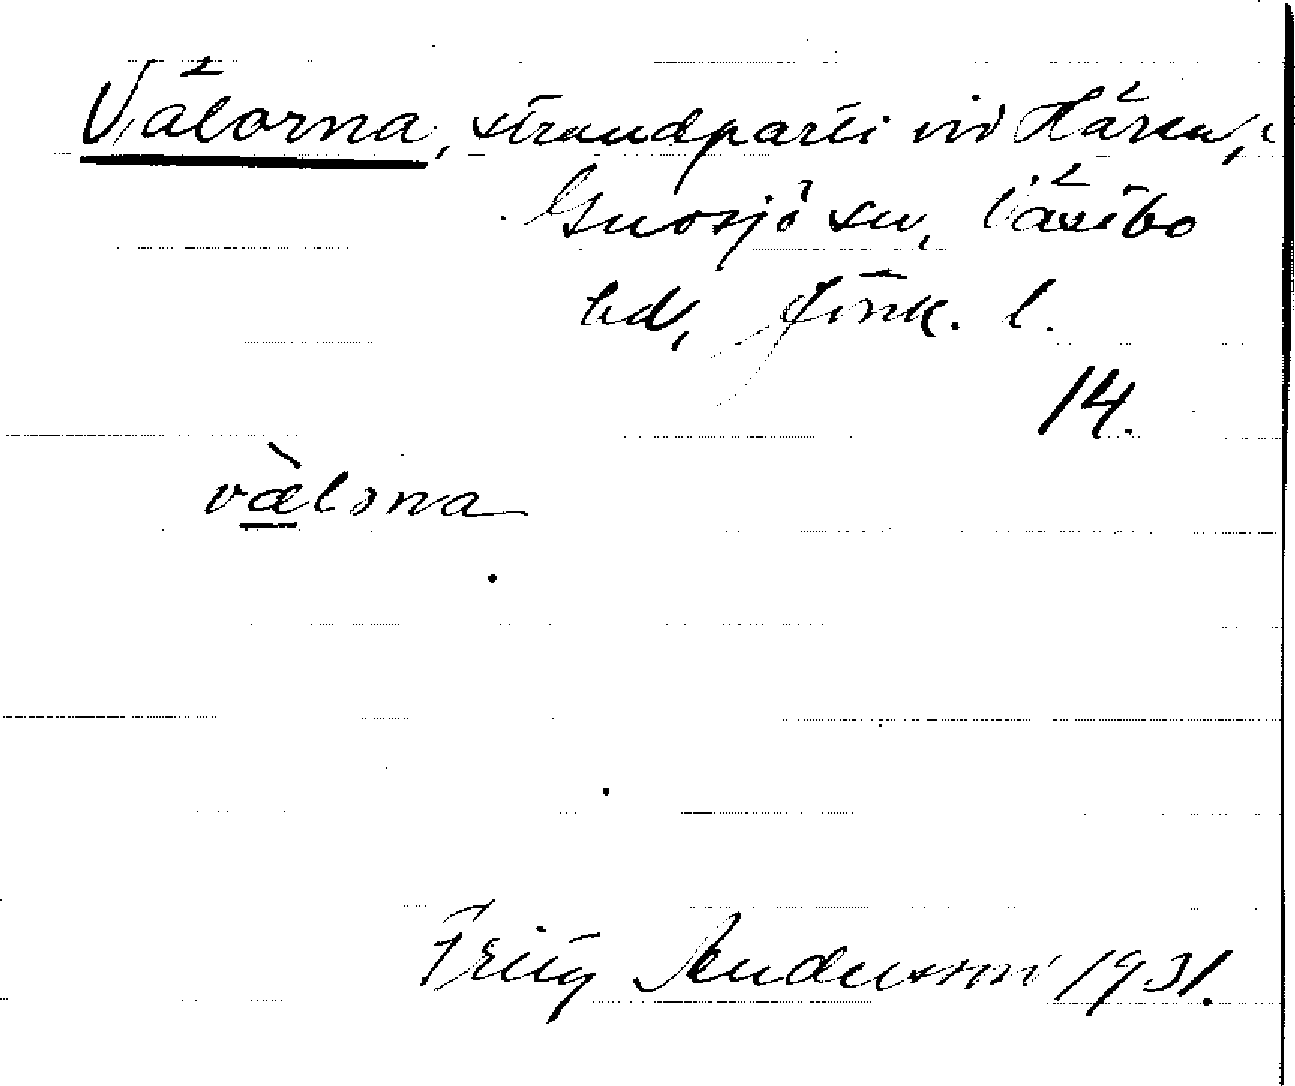 Välorna, strandparti vid Hären, i
Gnosjö sn, Västbo
hd, Jönk. l.
14.
vælɔna
Fritz Andersson 1931.